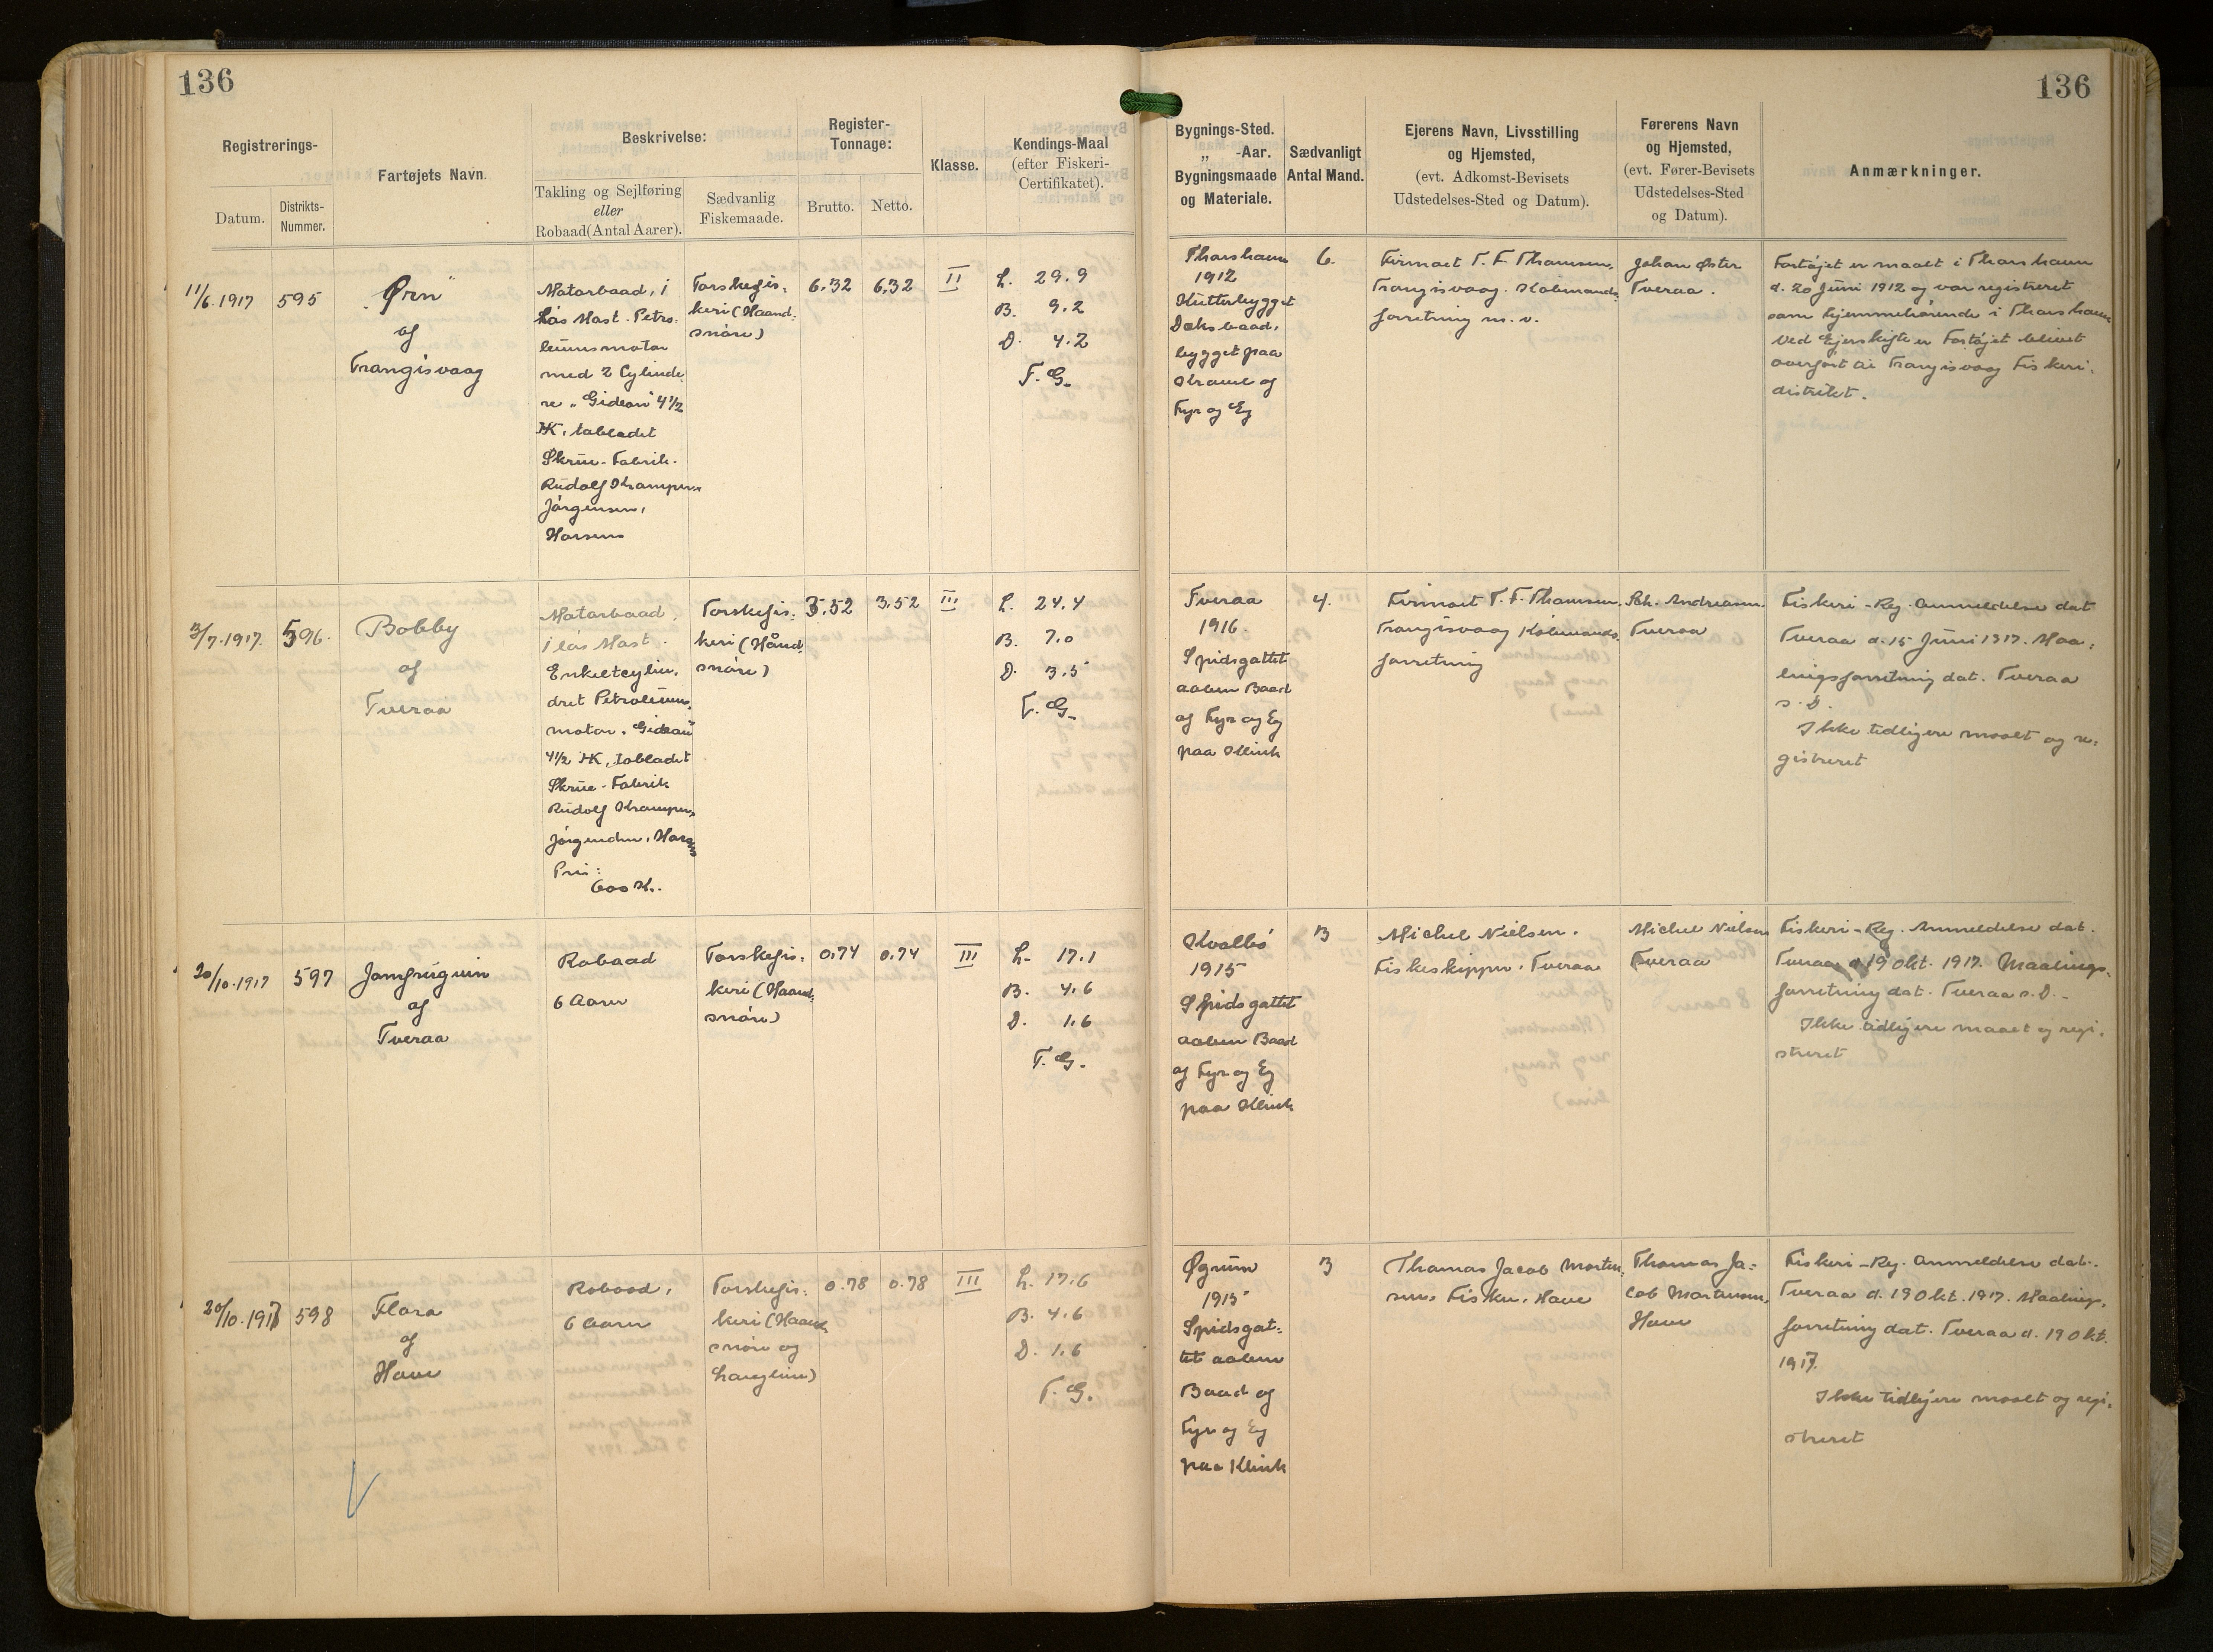 136
136
Registrerings-
Datum.
Distrikts-
Nummer.
Fartøjets Navn.
Beskrivelse:
Takling og Sejlføring
eller
Robaad (Antal Aarer).
Sædvanlig
Fiskemaade.
Register-
Tonnage:
Brutto.
Netto.
Klasse.
Kendings-Maal
(efter Fiskeri-
Certifikatet).
Bygnings-Sted.
„ -Aar.
Bygningsmaade
og Materiale.
Sædvanligt
Antal Mand.
Ejerens Navn, Livsstilling
og Hjemsted,
(evt. Adkomst-Bevisets
Udstedelses-Sted og Datum).
Førerens Navn
og Hjemsted,
(evt. Fører-Bevisets
Udstedelses-Sted
og Datum).
Anmærkninger.
11/6.1917
595
„Ørn"
af
Trangisvaag
Motorbaad, 1
løs Mast. Petro-
leumsmotor
med 2 Cylinde
re „Gideon" 4½
HK, tobladet
Skrue-Fabrik.
Rudolf Kramper
Jörgensen,
Horsens
Torskefis-
keri (Haand-
snöre)
6,32
6,32
II
L. 29.9
B. 9.2
D. 4.2
T. G.
Thorshavn
1912
Kutterbygget
Dæksbaad,
bygget paa
Kravel og
Fyr og Eg
6.
Firmaet T. F. Thomsen,
Trangisvaag. Köbmands-
forretning m. v.
Johan Øster
Tveraa.
Fartöjet er maalt i Thorshavn
d. 20 Juni 1912 og var registreret
som hjemmehörende i Thorshavn
Ved Ejerskifte er Fartöjet blivet
overfört til Trangisvaag Fiskeri-
distrikt.
3/7.1917.
596.
Bobby
af
Tveraa
Motorbaad,
1 lös Mast.
Enkeltcylin-
dret Petroleums-
motor „Gideon"
4½ HK, tobladet
Skrue-Fabrik
Rudolf Kramper,
Jörgensen, Horsens
Pris:
600 Kr.
Torskefis-
keri (Hånd-
snöre)
3.52
3.52
III
L. 24.4
B. 7.0
D. 3.5
T. G.
Tveraa
1916.
Spidsgattet
aaben Baad
af Fyr og Eg
paa Klink
4.
Firmaet T. F. Thomsen.
Trangisvaag Köbmands-
forretning
Joh. Andreasen.
Tveraa
Fiskeri-Reg. Anmeldelse dat
Tveraa d. 15 Juni 1917. Maa-
lingsforretning dat. Tveraa
s. D.
Ikke tidligere maalt og re-
gistreret
20/10.1917
597
Jomfruguin
af
Tveraa
Robaad
6 Aarer
Torskefis-
keri (Haand-
snöre)
0.74
0.74
III
L. 17.1
B. 4.6
D. 1.6
T. G.
Kvalbö
1915
Spidsgattet
aaben Baad
af Fyr og Eg
paa Klink
3
Michel Nielsen.
Fiskeskipper. Tveraa
Michel Nielsen
Tveraa
Fiskeri-Reg. Anmeldelse dat.
Tveraa d 19 Okt. 1917. Maalings-
forretning dat. Tveraa s. D.
Ikke tidligere maalt og regi-
streret
20/10.1917
598
Flora
af
Hove
Robaad,
6 Aarer
Torskefis-
keri (Haand-
snöre og
Langline)
0.78
0.78
III
L. 17.6
B. 4.6
D. 1.6
T. G.
Øgrum
1915
Spidsgat-
tet aaben
Baad og
Fyr og Eg
paa Klink
3
Thomas Jacob Morten-
sen. Fisker. Hove
Thomas Ja-
cob Mortensen,
Hove
Fiskeri-Reg. Anmeldelse dat.
Tveraa d. 19 Okt. 1917. Maalings-
forretning dat. Tveraa d. 19 Okt.
1917.
Ikke tidligere maalt og regi-
streret